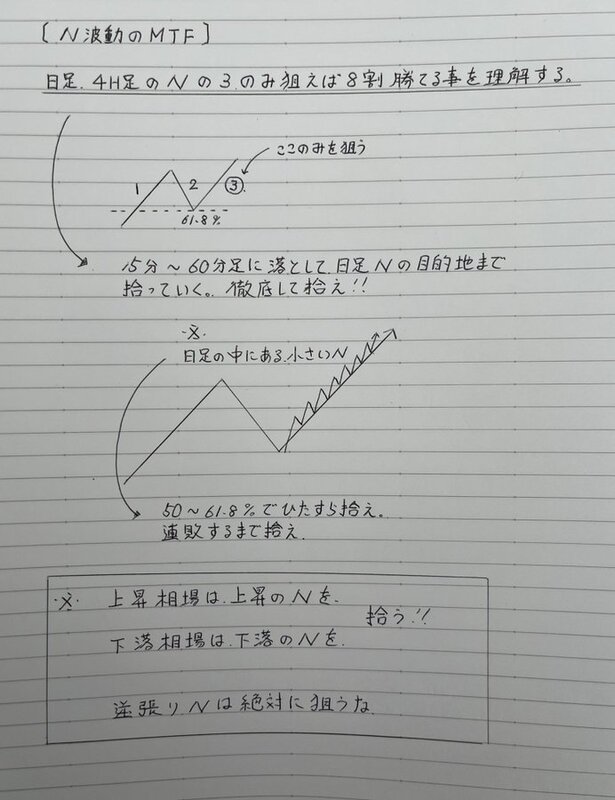 〔N波動のMTF〕
日足、4H足のNの3のみ狙えば8割勝てる事を理解する。
ここのみを狙う
1 2 ③
61.8%
15分～60分足に落として、日足Nの目的地まで
拾っていく。徹底して拾え!!
※
日足の中にある、小さいN
50～61.8%でひたすら拾え。
連敗するまで拾え
※ 上昇相場は、上昇のNを、
拾う!!
下落相場は、下落のNを、
逆張りNは絶対に狙うな